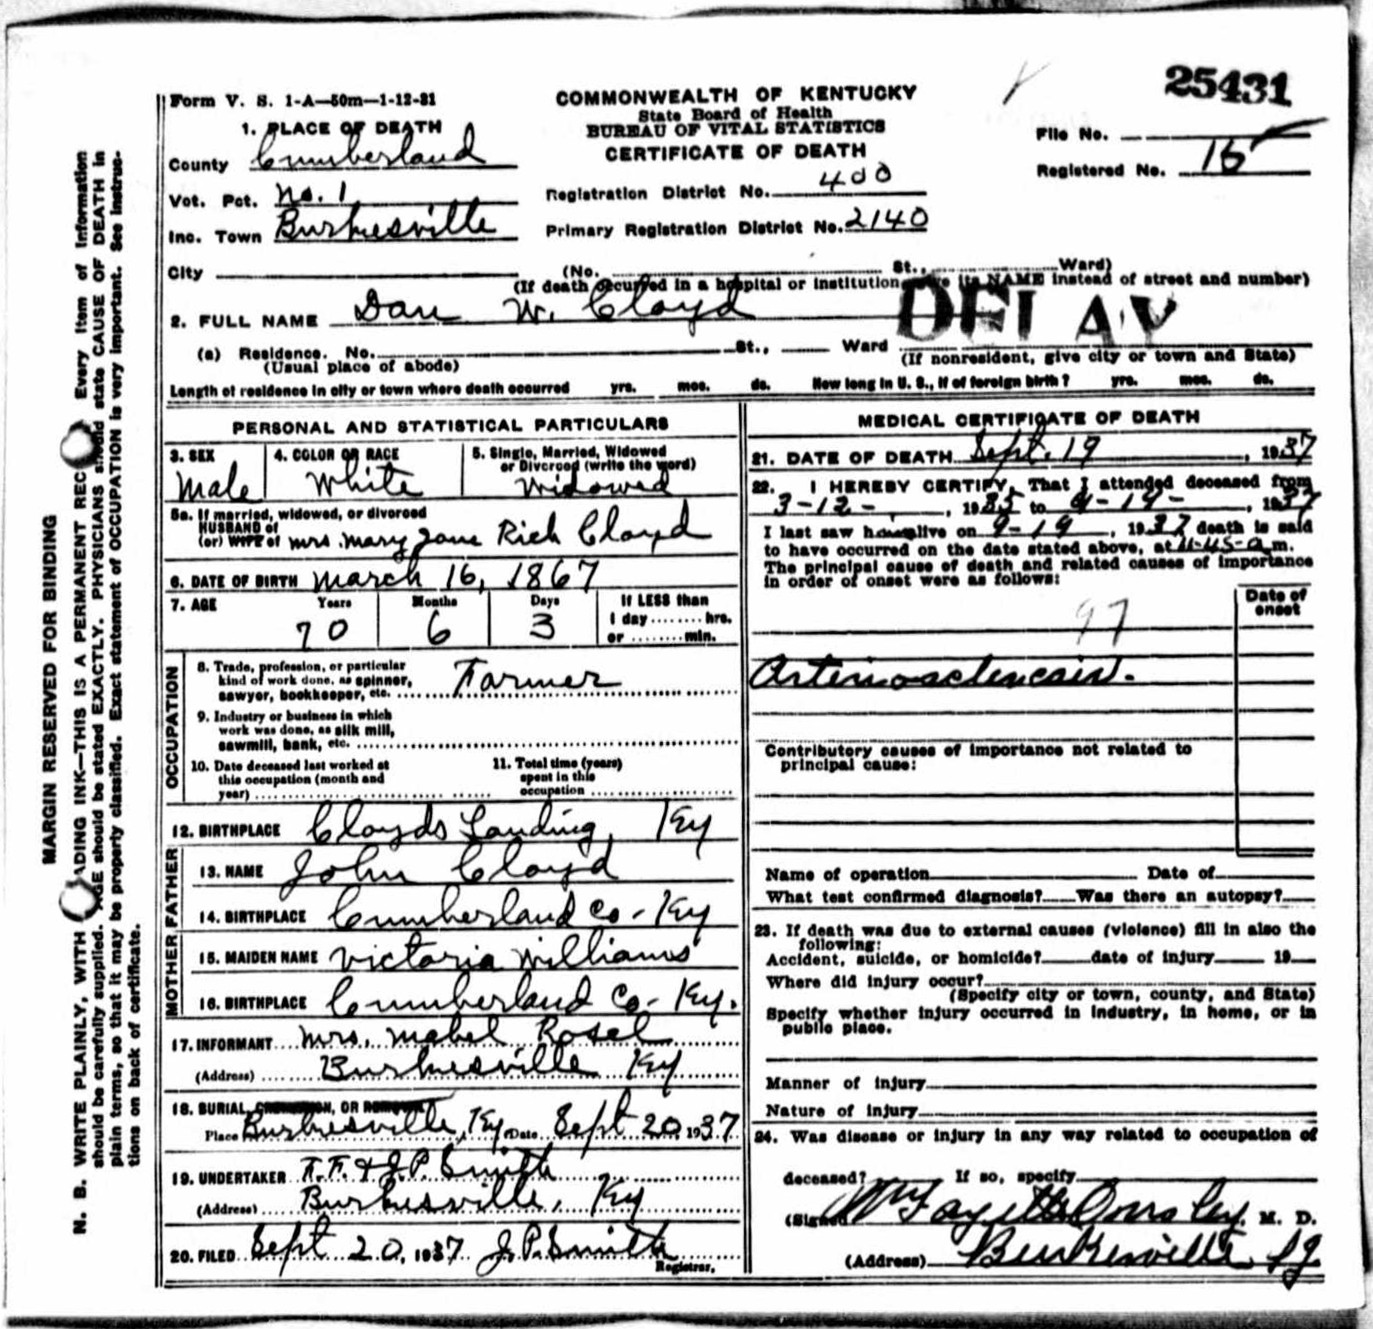 25431
Form V. S. 1-A—50m—1-12-31
COMMONWEALTH OF KENTUCKY
State Board of Health
BUREAU OF VITAL STATISTICS
CERTIFICATE OF DEATH
File No.
Registered No. 15
1. PLACE OF DEATH
County Cumberland
Vot. Pct. No. 1
Inc. Town Burkesville
Registration District No. 400
Primary Registration District No. 2140
City (No. St., Ward)
(If death occurred in a hospital or institution, give its NAME instead of street and number)
DELAY
2. FULL NAME Dan W. Cloyd
(a) Residence. No. St., Ward
(Usual place of abode) (If nonresident, give city or town and State)
Length of residence in city or town where death occurred yrs. mos. ds. How long in U. S., if of foreign birth? yrs. mos. ds.
PERSONAL AND STATISTICAL PARTICULARS
3. SEX 4. COLOR OR RACE 5. Single, Married, Widowed
or Divorced (write the word)
Male White Widowed
5a. If married, widowed, or divorced
HUSBAND of
(or) WIFE of Mrs. Mary Jane Rich Cloyd
6. DATE OF BIRTH March 16, 1867
7. AGE Years Months Days If LESS than
1 day ........ hrs.
or ........ min.
70 6 3
OCCUPATION
8. Trade, profession, or particular
kind of work done, as spinner,
sawyer, bookkeeper, etc. Farmer
9. Industry or business in which
work was done, as silk mill,
sawmill, bank, etc.
10. Date deceased last worked at
this occupation (month and
year)
11. Total time (years)
spent in this
occupation
12. BIRTHPLACE Cloyds Landing, Ky
FATHER
13. NAME John Cloyd
14. BIRTHPLACE Cumberland Co - Ky
MOTHER
15. MAIDEN NAME Victoria Williams
16. BIRTHPLACE Cumberland Co - Ky.
17. INFORMANT Mrs. Mabel Rosel
(Address) Burkesville Ky
18. BURIAL, CREMATION, OR REMOVAL
Place Burkesville, Ky Date Sept 20 1937
19. UNDERTAKER & J.P. Smith
(Address) Burkesville, Ky
20. FILED Sept 20, 1937 J.P. Smith
Registrar.
MEDICAL CERTIFICATE OF DEATH
21. DATE OF DEATH Sept. 19, 1937
22. I HEREBY CERTIFY, That I attended deceased from
3-12-, 1935 to 9-19-, 1937
I last saw h alive on 9-19, 1937 death is said
to have occurred on the date stated above, at 11-45-a m.
The principal cause of death and related causes of importance
in order of onset were as follows:
Date of
onset
97
Arteriosclerosis.
Contributory causes of importance not related to
principal cause:
Name of operation Date of
What test confirmed diagnosis? Was there an autopsy?
23. If death was due to external causes (violence) fill in also the
following:
Accident, suicide, or homicide? date of injury 19
Where did injury occur?
(Specify city or town, county, and State)
Specify whether injury occurred in industry, in home, or in
public place.
Manner of injury
Nature of injury
24. Was disease or injury in any way related to occupation of
deceased? If so, specify
(Signed) Wm Fayette Owsley, M. D.
(Address) Burkesville Ky
MARGIN RESERVED FOR BINDING
N. B. WRITE PLAINLY, WITH ADING INK—THIS IS A PERMANENT REC Every item of information
should be carefully supplied. AGE should be stated EXACTLY. PHYSICIANS should state CAUSE OF DEATH in
plain terms, so that it may be properly classified. Exact statement of OCCUPATION is very important. See instruc-
tions on back of certificate.